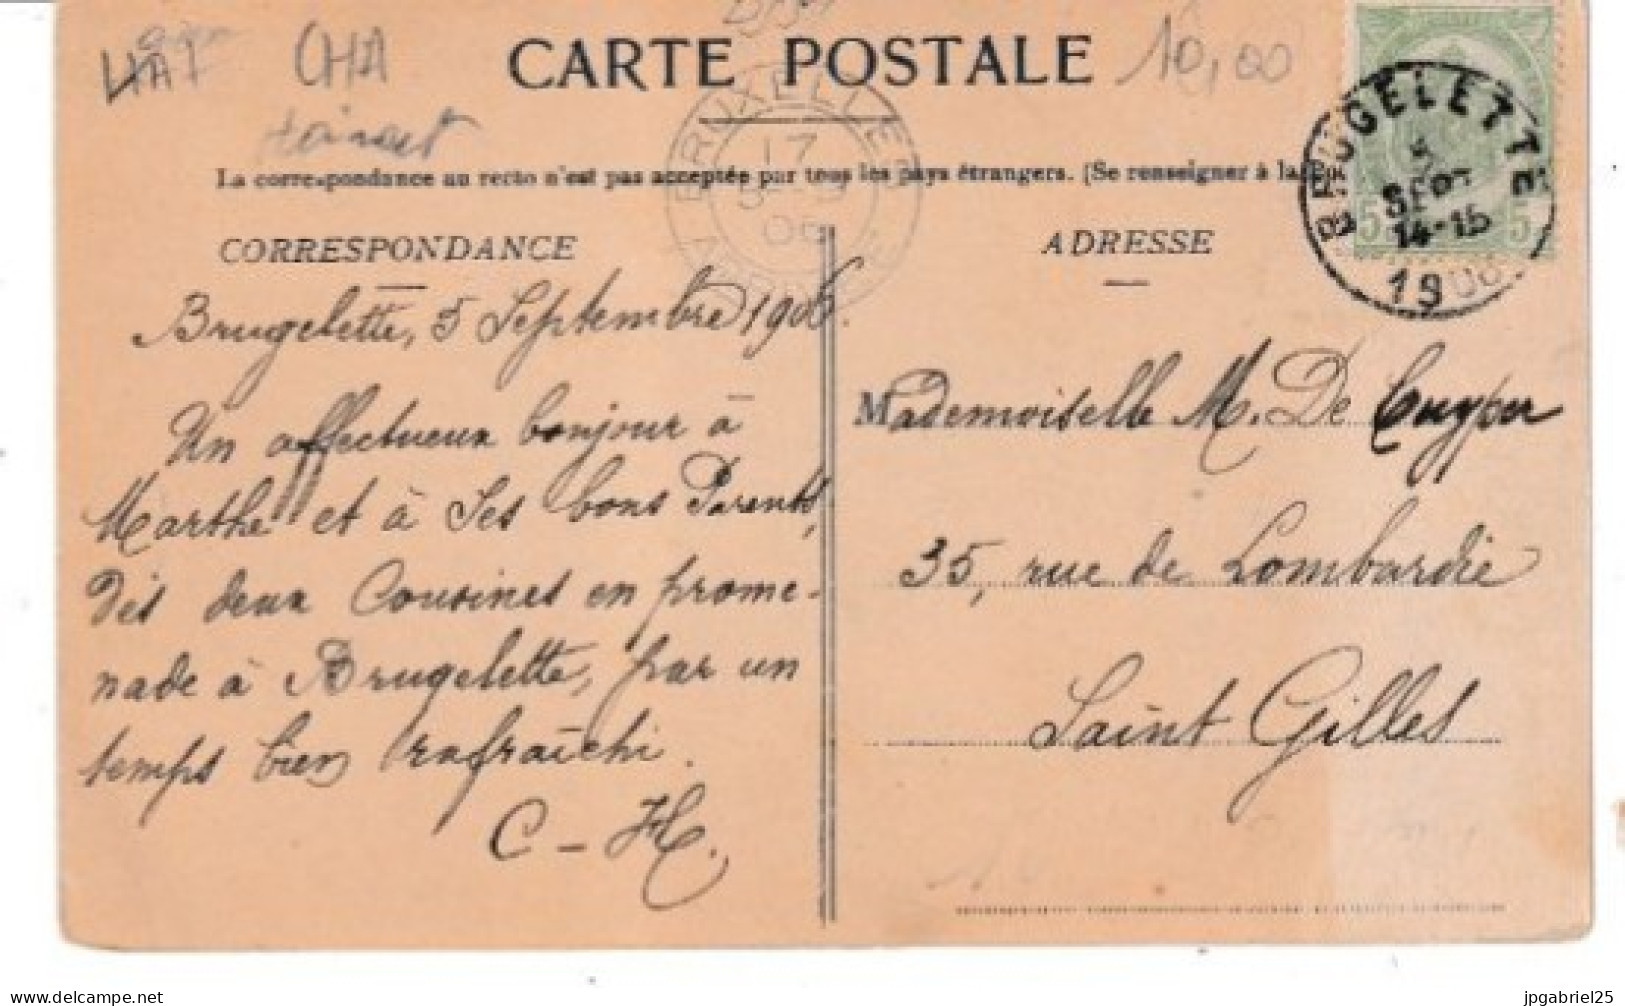 CHA
Hainaut
CARTE POSTALE
10,00
La correspondance au recto n'est pas acceptée par tous les pays étrangers. (Se renseigner à la
BRUXELLES
17
5
06
BRUGELETTE
5
SEPT
14-15
1906
5 5
CORRESPONDANCE
Brugelette, 5 Septembre 1906.
Un affectueux bonjour à
Marthe et à Ses bons Parents,
des deux Cousines en prome-
nade à Brugelette, par un
temps bien rafraîchi.
C - H.
ADRESSE
Mademoiselle M. De Cuyper
35, rue de Lombardie
Saint Gilles
delcampe.net
jpgabriel25